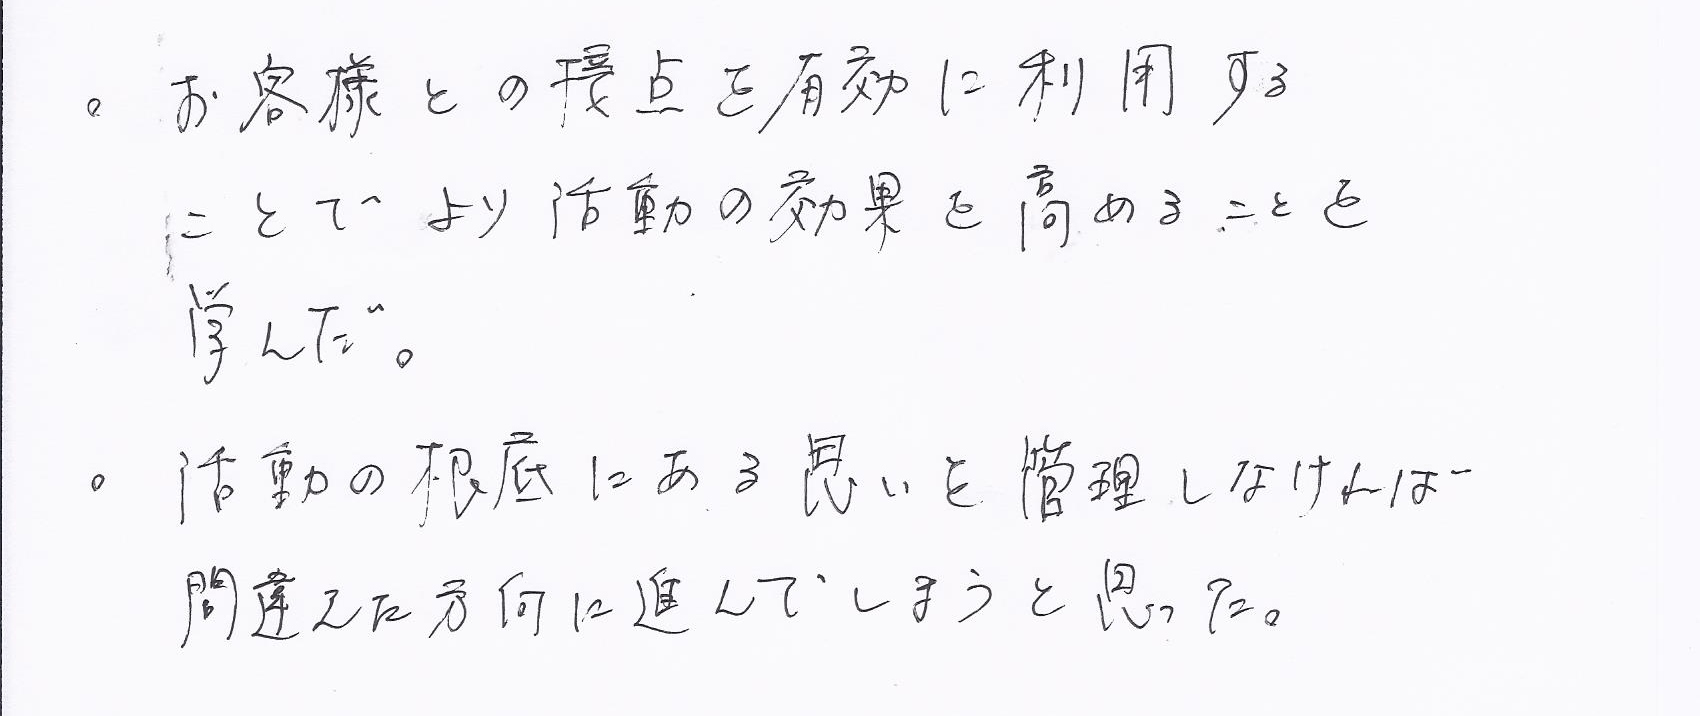 。お客様との接点を有効に利用する
ことでより活動の効果を高めることを
学んだ。
。活動の根底にある思いを管理しなければ
間違えた方向に進んでしまうと思った。